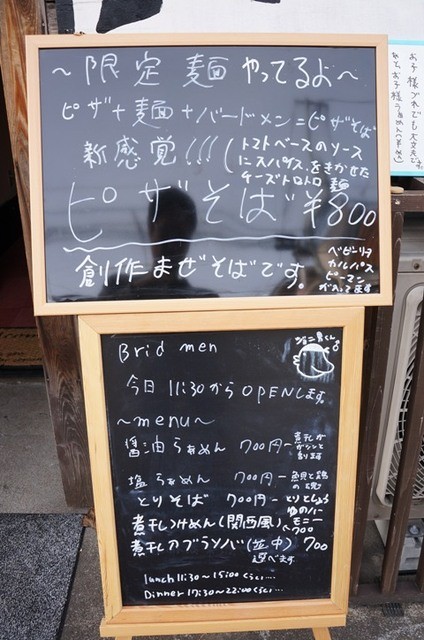 ～限定麺やってるよ～
ピザ+麺+バードメン=ピザそば
新感覚!!!
(トマトベースのソース
にスパイスをきかせた
チーズトロトロ麺
ピザそば ¥800
創作まぜそばです。
ベビーリーフ
カルパス
ピーマン
が入ってます
Brid men
今日 11:30から OPENします
～menu～
醤油らぁめん 700円ー煮干しが
ガツンと
塩らぁめん 700円ー魚貝と鶏
とりそば 700円ーとりとしょう
ゆのハー
モニー
煮干しつけめん(関西風)
700
煮干しアブラソバ(並中) 700
選べます
lunch 11:30～15:00くらい...
Dinner 17:30～22:00くらい...
お子様づれでも大丈夫です。